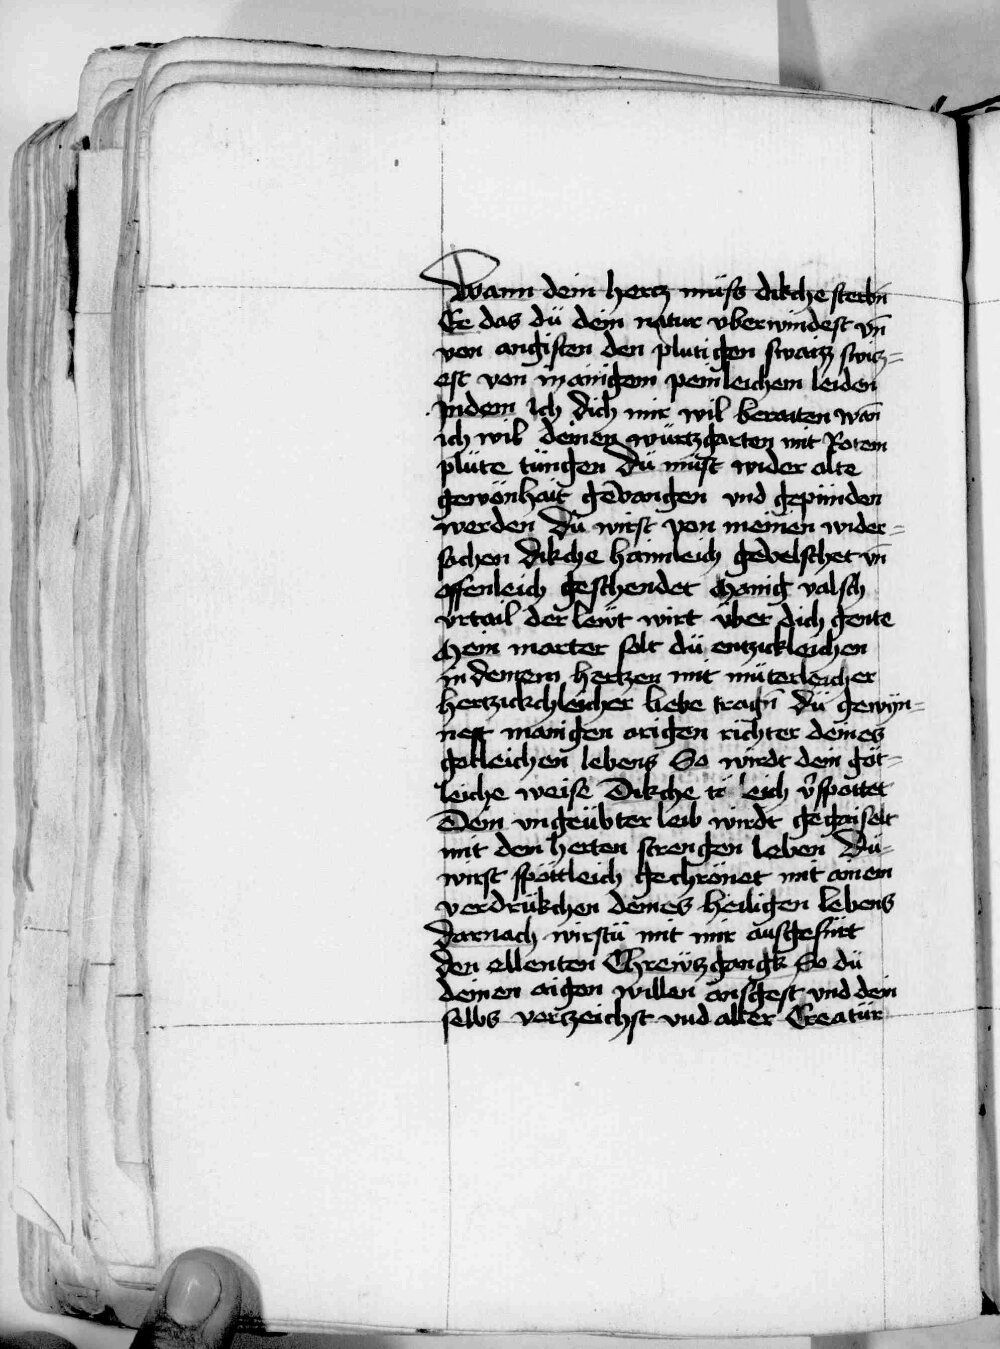 Wann dein hertz müss dikche sterbn̄
Ee das dü dein natur vberwindest vn̄
von angsten den plutigen swaiz swiz=
est von manigem peinleichem leiden
Indem ich dich mir wil beraiten wan̄
ich wil deinen würtzgarten mit Rotem
plüte tüngen Dü müst wider alte
gewönhait gevangen vnd gepünden
werden Dü wirst von meinen wider=
sachen dikche haimleich gevelschet vn̄
offenleich geschendet Manig valsch
vrtail der lewt wirt über dich gente
Mein marter solt dü entzickleichen
in deinem hertzen mit müterleicher
hertzickchleicher liebe tragn̄ Dü gewÿn=
nest manigen arigen richter deines
gotleichen lebens So wirdt dein göt=
leiche weise Dikche leich v̄spottet
Dein vngeübter leib wirdt gegaiselt
mit dem herten strengen leben Dü
wirst spöttleich gechrönet mit ainem
verdrükchen deines heiligen lebens
Darnach wirstü mit mir ausgefürt
den ellenten Chrewtzgangk So dü
deinen aigen willen ausgest vnd dein
selbs verzeichst vnd aller Creatür